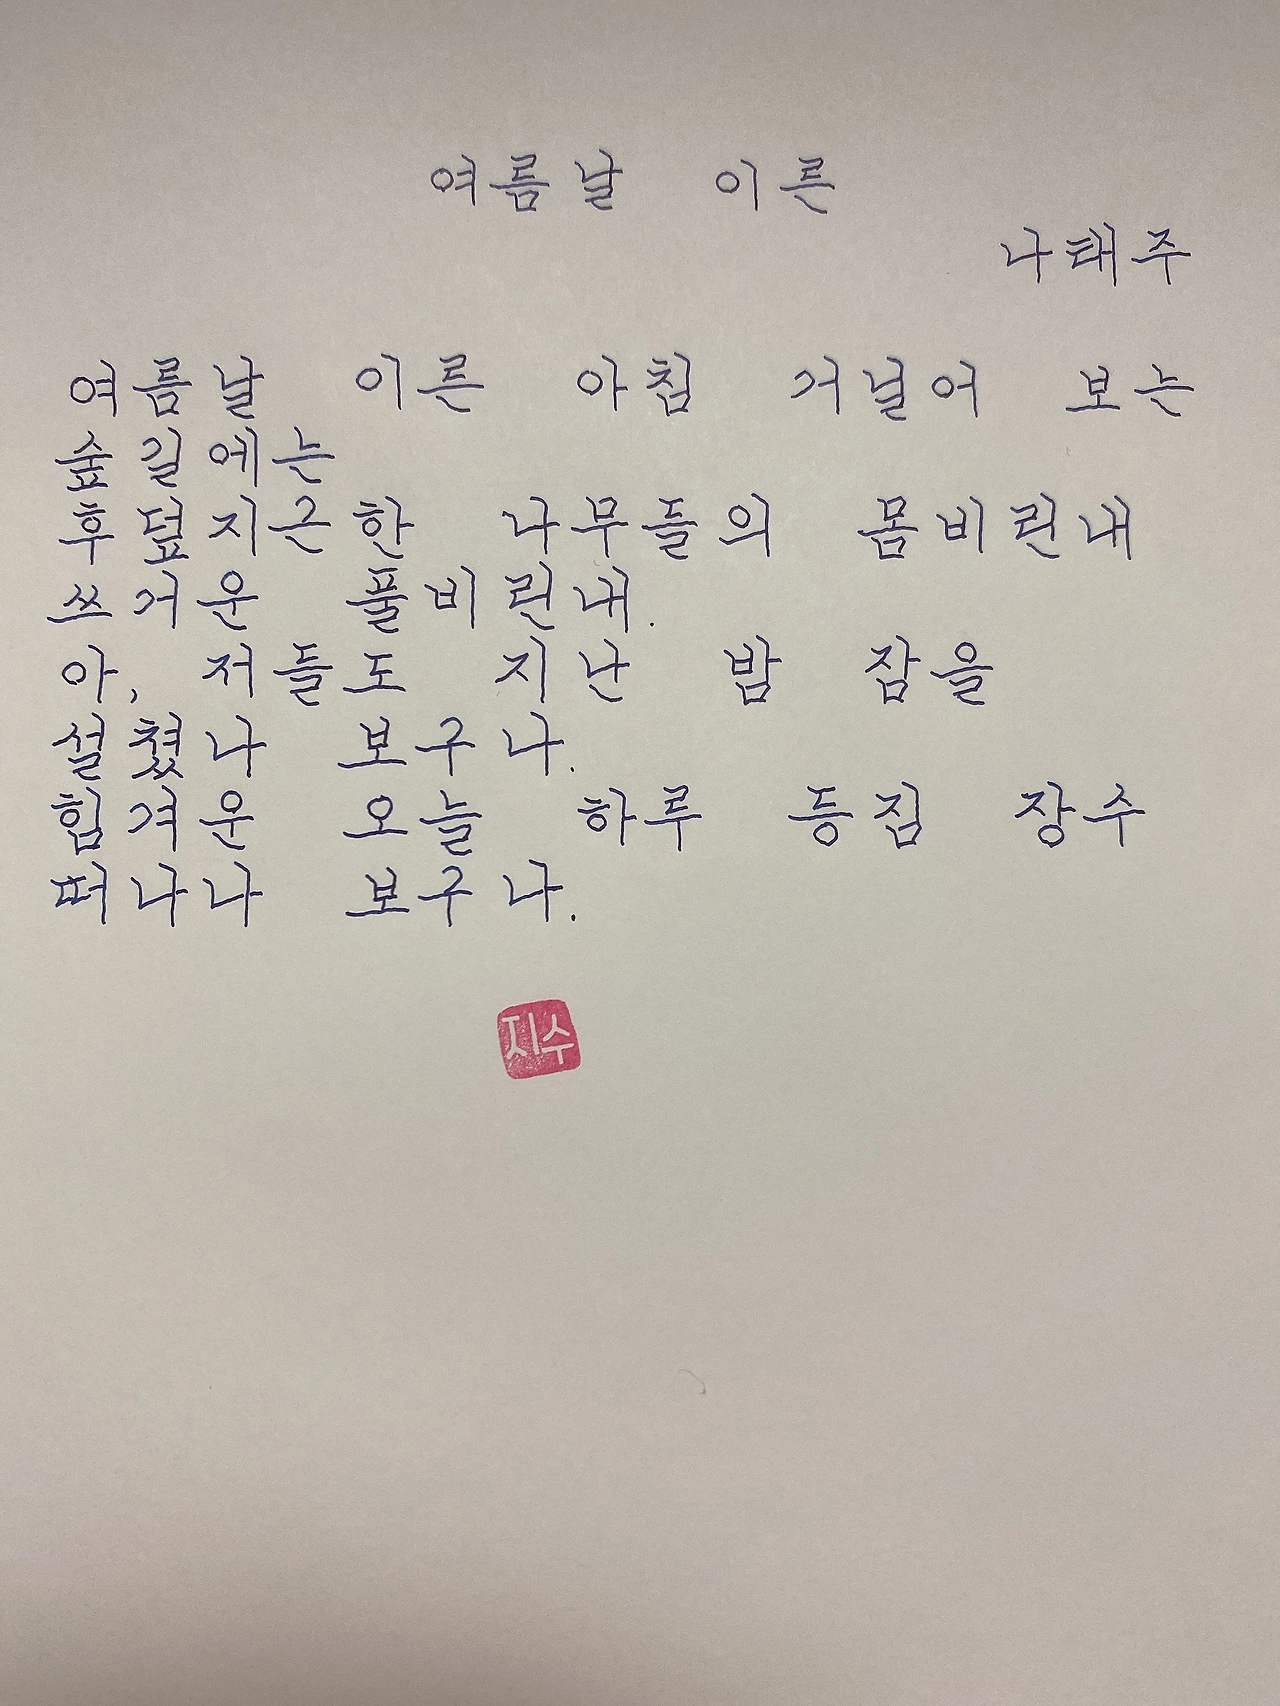 여름날 이른
나태주
여름날 이른 아침 거닐어 보는
숲길에는
후덮지근한 나무들의 몸비린내
쓰거운 풀비린내.
아, 저들도 지난 밤 잠을
설쳤나 보구나.
힘겨운 오늘 하루 등짐 장수
떠나나 보구나.
지수